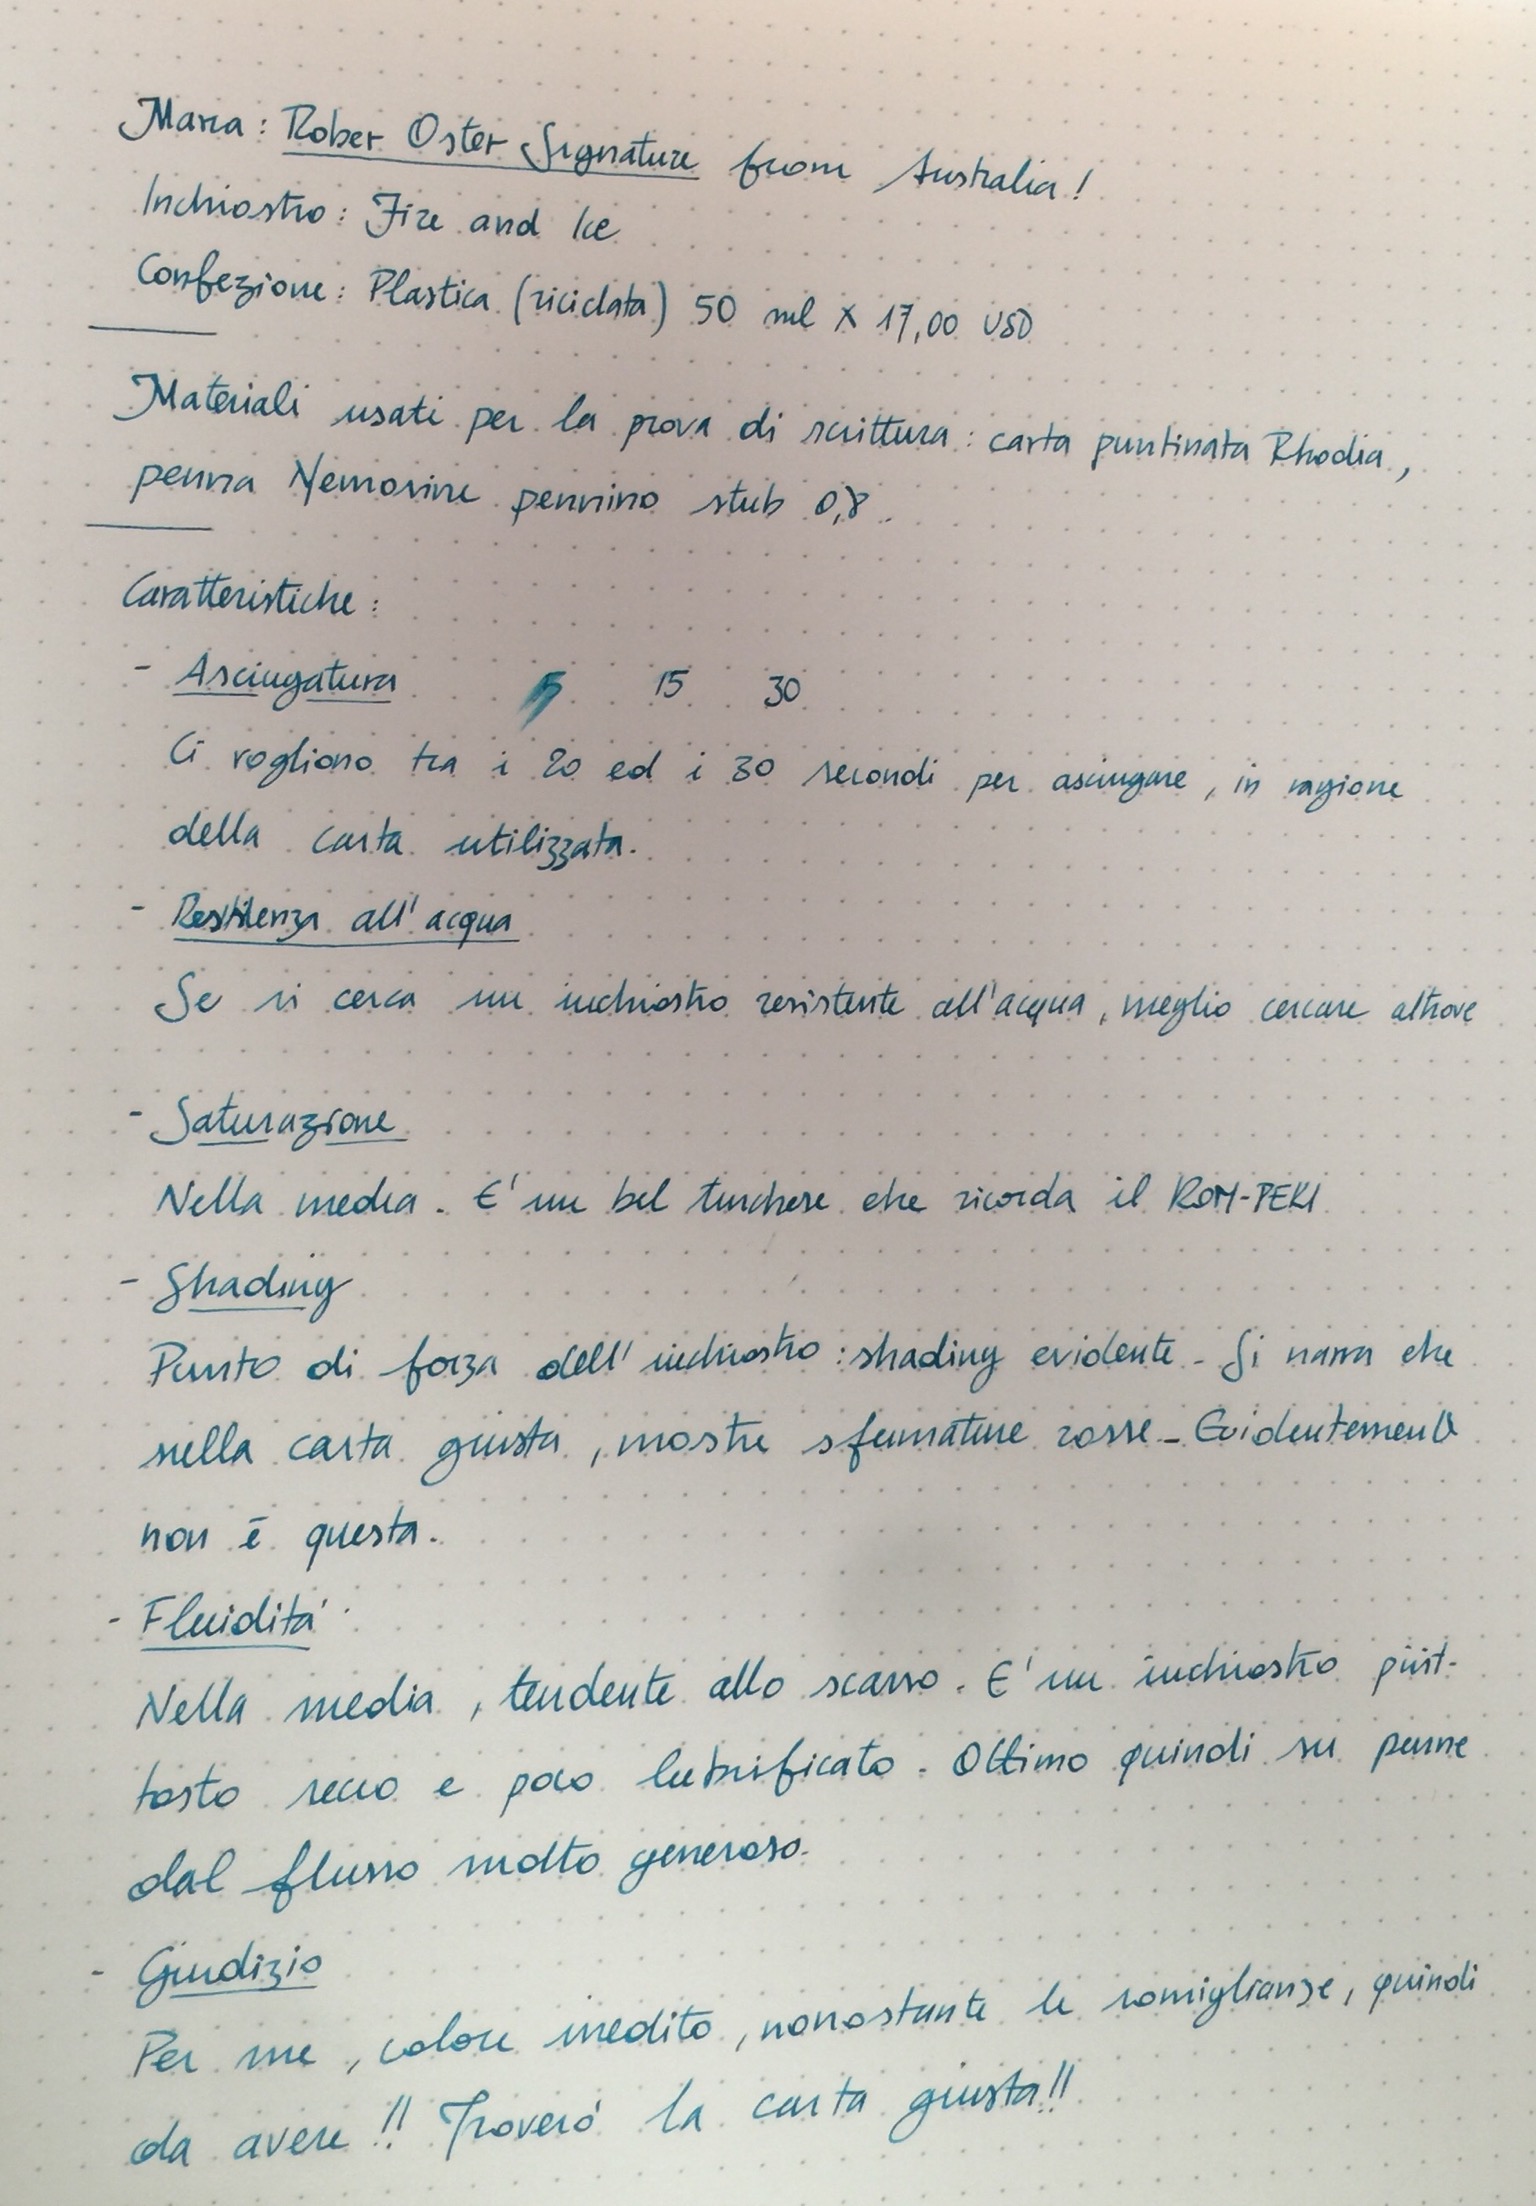 Marca: Rober Oster Signature from Australia!
Inchiostro: Fire and Ice
Confezione: Plastica (riciclata) 50 ml x 17,00 USD
Materiali usati per la prova di scrittura: carta puntinata Rhodia,
penna Nemosine pennino stub 0,8.
Caratteristiche:
- Asciugatura 5 15 30
Ci vogliono tra i 20 ed i 30 secondi per asciugare, in ragione
della carta utilizzata.
- all'acqua
Se si cerca un inchiostro resistente all'acqua, meglio cercare altrove
- Saturazione
Nella media. E' un bel turchese che ricorda il
- Shading
Punto di forza dell'inchiostro: shading evidente. Si narra che
nella carta giusta, mostri sfumature rosse. Evidentemente
non è questa.
- Fluidità
Nella media, tendente allo scarso. E' un inchiostro piut-
tosto secco e poco lubrificato. Ottimo quindi su penne
dal flusso molto generoso.
- Giudizio
Per me, colore inedito, nonostante le somiglianze, quindi
da avere!! Troverò la carta giusta!!